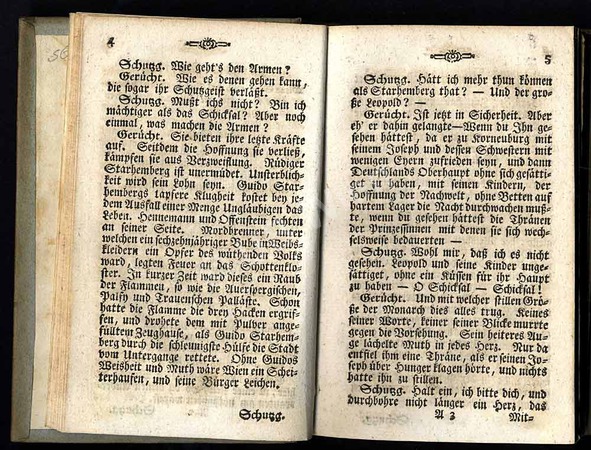 4
Schutzg. Wie geht's den Armen?
Gerücht. Wie es denen gehen kann,
die sogar ihr Schutzgeist verläßt.
Schutzg. Mußt ichs nicht? Bin ich
mächtiger als das Schicksal? Aber noch
einmal, was machen die Armen?
Gerücht. Sie bieten ihre letzte Kräfte
auf. Seitdem die Hoffnung sie verließ,
kämpfen sie aus Verzweiflung. Rüdiger
Starhemberg ist unermüdet. Unsterblich-
keit wird sein Lohn seyn. Guido Star-
hembergs tapfere Klugheit kostet bey je-
dem Ausfall einer Menge Ungläubigen das
Leben. Hennemann und Offenstein fechten
an seiner Seite. Mordbrenner, unter
welchen ein sechzehnjähriger Bube in Weibs-
kleidern ein Opfer des wüthenden Volks
ward, legten Feuer an das Schottenklo-
ster. In kurzer Zeit ward dieses ein Raub
der Flammen, so wie die Auerspergischen,
Palfy und Trauenschen Palläste. Schon
hatte die Flamme die drey Hacken ergrif-
fen, und drohete dem mit Pulver ange-
fülltem Zeughause, als Guido Starhem-
berg durch die schleunigste Hülfe die Stadt
vom Untergange rettete. Ohne Guidos
Weisheit und Muth wäre Wien ein Schei-
terhaufen, und seine Bürger Leichen.
Schutzg.
5
Schutzg. Hätt ich mehr thun können
als Starhemberg that? — Und der gro-
ße Leopold? —
Gerücht. Ist jetzt in Sicherheit. Aber
eh' er dahin gelangte — Wenn du Ihn ge-
sehen hättest, da er zu Korneuburg mit
seinem Joseph und dessen Schwestern mit
wenigen Eyern zufrieden seyn, und dann
Deutschlands Oberhaupt ohne sich gesätti-
get zu haben, mit seinen Kindern, der
Hoffnung der Nachwelt, ohne Betten auf
hartem Lager die Nacht durchwachen muß-
te, wenn du gesehen hättest die Thränen
der Prinzessinnen mit denen sie sich wech-
selsweise bedauerten —
Schutzg. Wohl mir, daß ich es nicht
gesehen. Leopold und seine Kinder unge-
sättiget, ohne ein Küssen für ihr Haupt
zu haben — O Schicksal — Schicksal!
Gerücht. Und mit welcher stillen Grö-
ße der Monarch dies alles trug. Keines
seiner Worte, keiner seiner Blicke murrte
gegen die Vorsehung. Sein heiteres Au-
ge lächelte Muth in jedes Herz. Nur da
entfiel ihm eine Thräne, als er seinen Jo-
seph über Hunger klagen hörte, und nichts
hatte ihn zu stillen.
Schutzg. Halt ein, ich bitte dich, und
durchbohre nicht länger ein Herz, das
A 3
Mit-